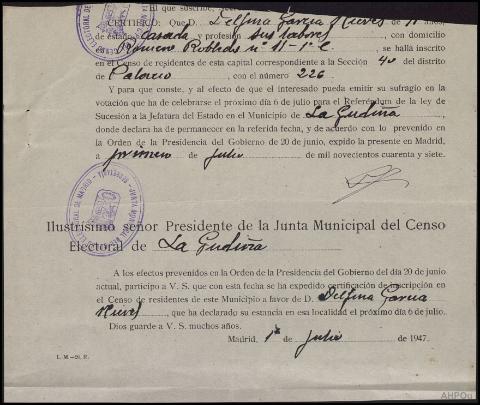 que suscribe,
CERTIFICO: Que D. Delfina Garcia Nieves de años,
de estado Casada y profesión sus labores, con domicilio
en Romero Robledo nº 11-1º C., se halla inscrito
en el Censo de residentes de esta capital correspondiente a la Sección 40 del distrito
de Palacio, con el número 226.
Y para que conste, y al efecto de que el interesado pueda emitir su sufragio en la
votación que ha de celebrarse el próximo día 6 de julio para el Referéndum de la ley de
Sucesión a la Jefatura del Estado en el Municipio de La Gudiña,
donde declara ha de permanecer en la referida fecha, y de acuerdo con lo prevenido en
la Orden de la Presidencia del Gobierno de 20 de junio, expido la presente en Madrid,
a primero de Julio de mil novecientos cuarenta y siete.
Ilustrísimo señor Presidente de la Junta Municipal del Censo
Electoral de La Gudiña
A los efectos prevenidos en la Orden de la Presidencia del Gobierno del día 20 de junio
actual, participo a V. S. que con esta fecha se ha expedido certificación de inscripción
en el Censo de residentes de este Municipio a favor de D. Delfina Garcia
Nieves, que ha declarado su estancia en esa localidad el próximo día 6 de julio.
Dios guarde a V. S. muchos años.
Madrid, 1º de Julio de 1947.
L. M.—21. R.
AHPOu